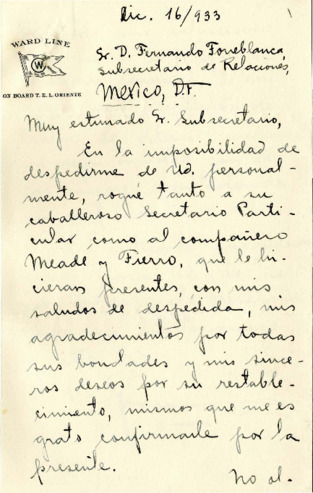 Dic. 16/933
WARD LINE
W
ON BOARD T. E. L. ORIENTE
Sr. D. Fernando Torreblanca,
Subsecretario de Relaciones,
Mexico, D.F.
Muy estimado Sr. Subsecretario,
En la imposibilidad de
despedirme de Ud. personal-
mente, rogué tanto a su
caballeroso Secretario Parti-
cular como al compañero
Meade y Fierro, que le hi-
cieran presentes, con mis
saludos de despedida, mis
agradecimientos por todas
sus bondades y mis since-
ros deseos por su restable-
cimiento, mismos que me es
grato confirmarle por la
presente.
No ol-